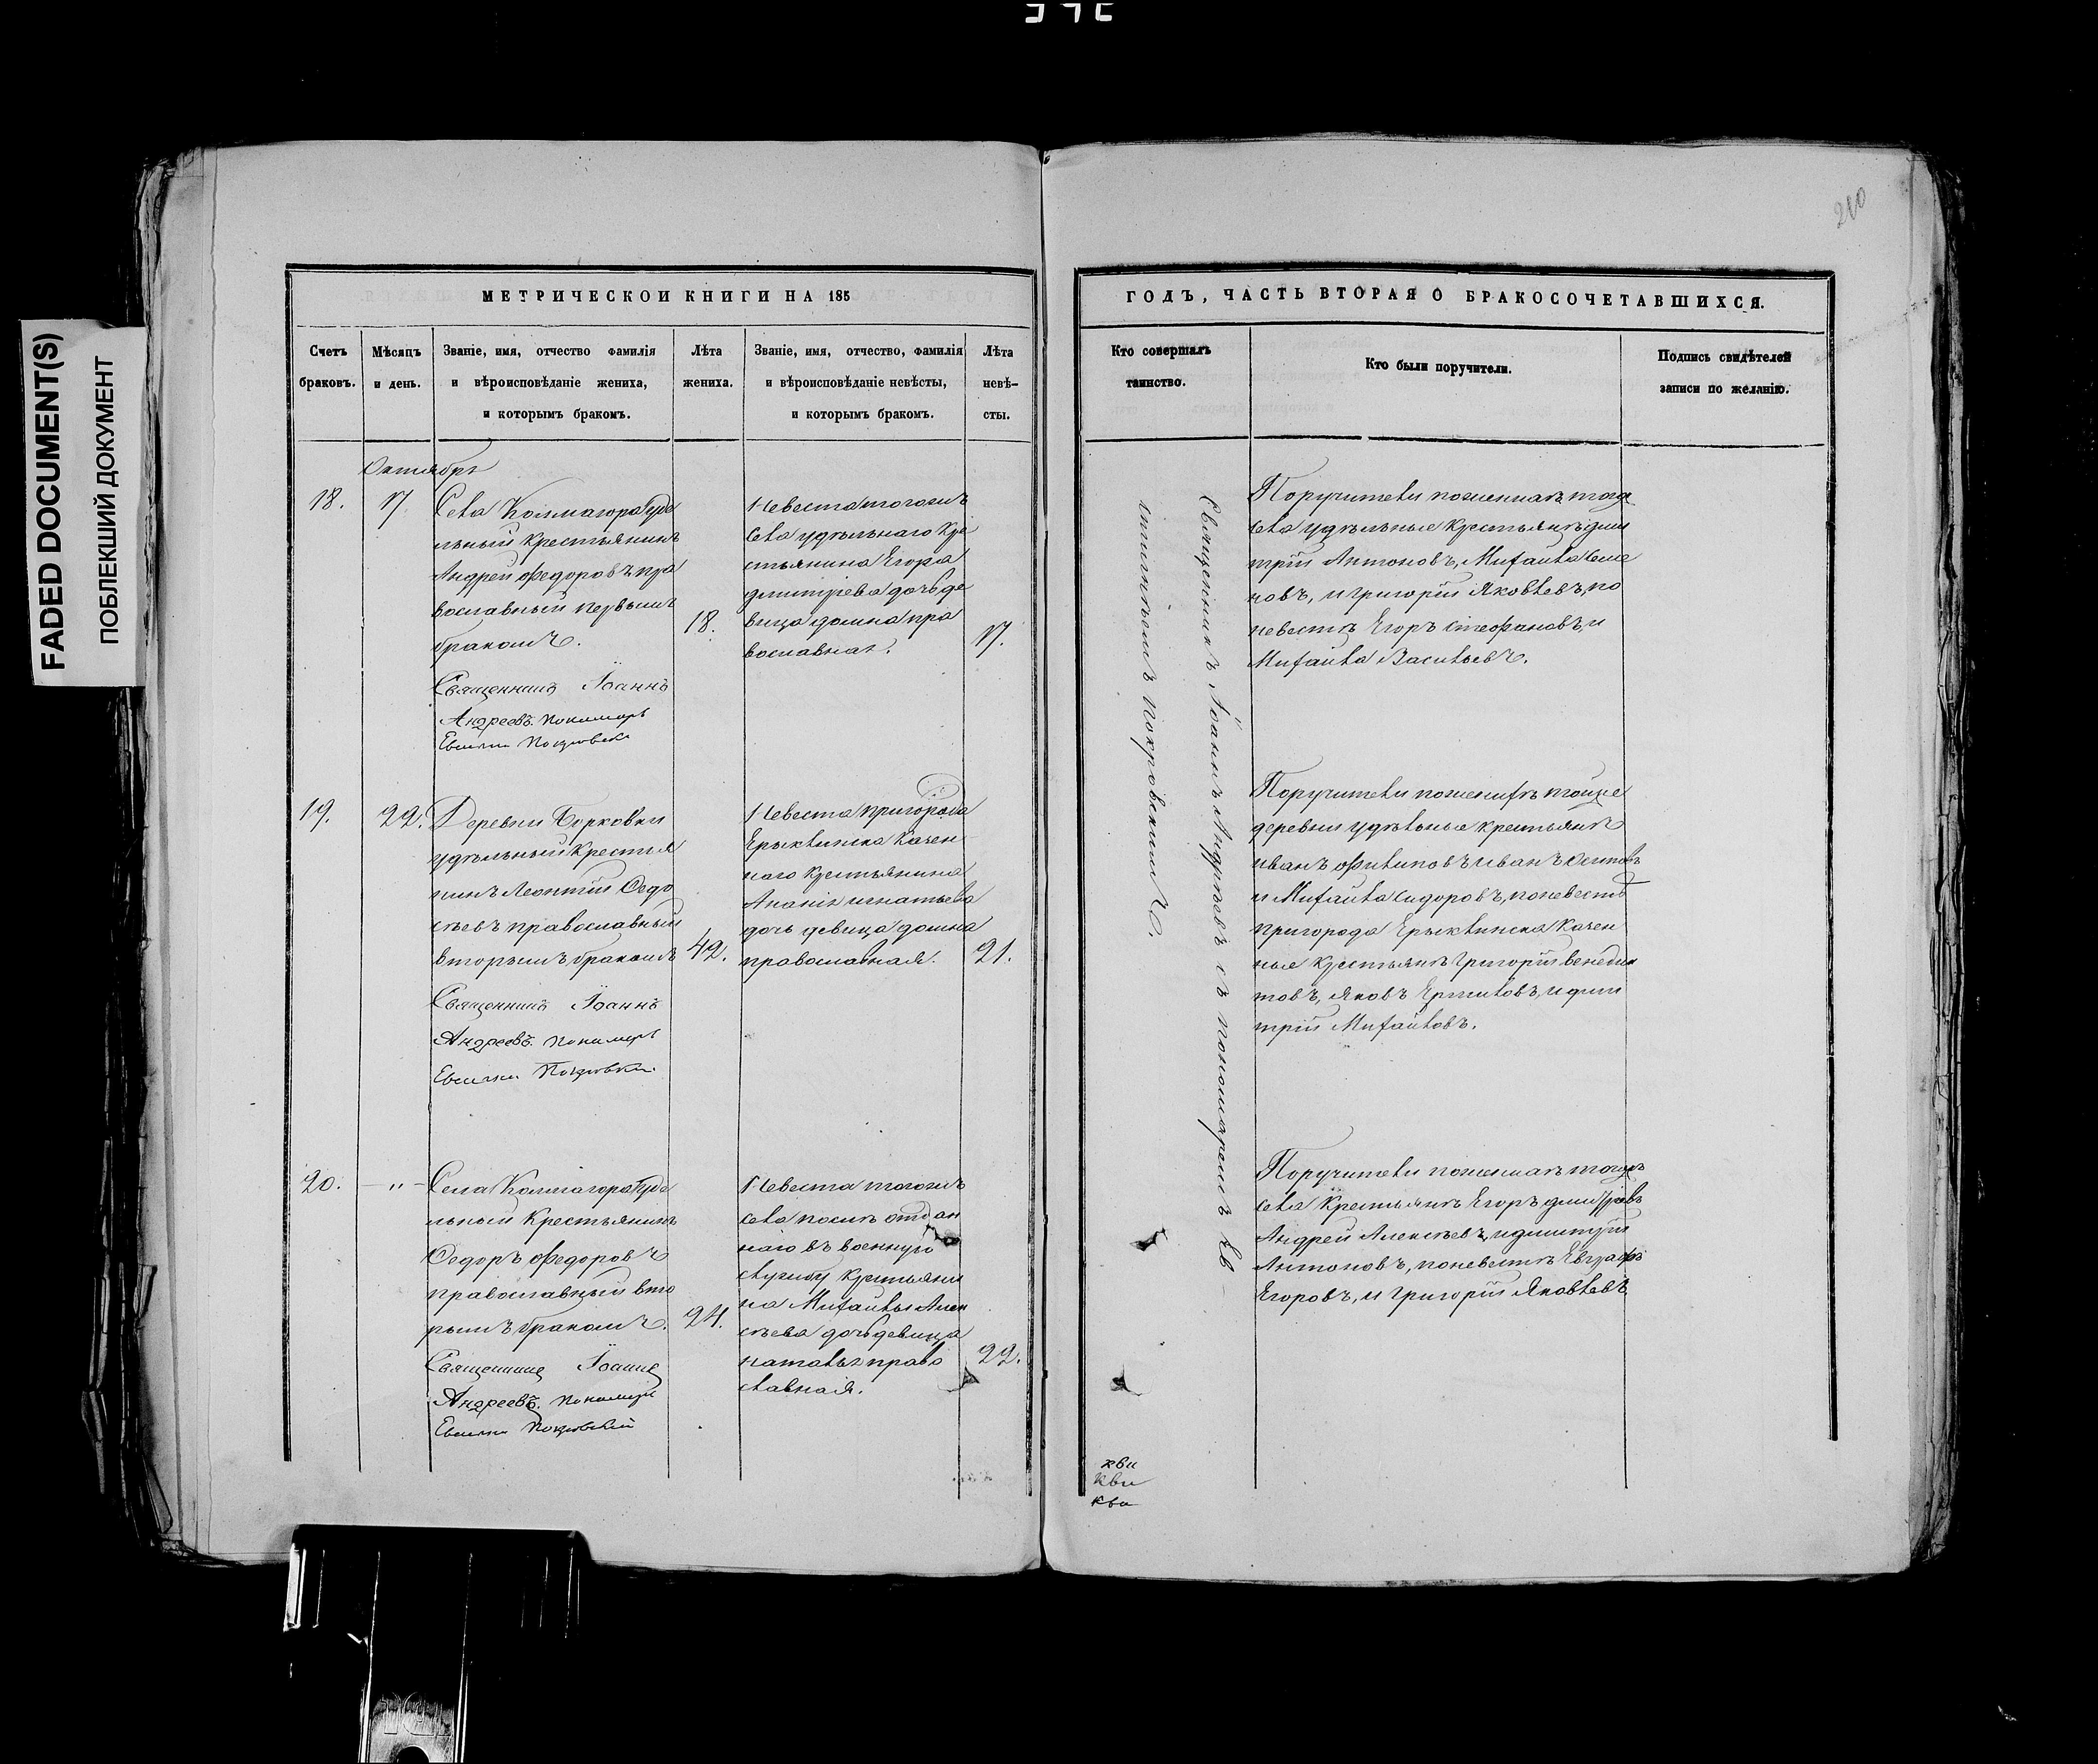 FADED DOCUMENT(S)
ПОБЛЕКШИЙ ДОКУМЕНТ
210
МЕТРИЧЕСКОИ КНИГИ НА 185
Счетъ браковъ.
Мѣсяцъ и день.
Званіе, имя, отчество фамилія
и вѣроисповѣданіе жениха,
и которымъ бракомъ.
Лѣта жениха.
Званіе, имя, отчество, фамилія
и вѣроисповѣданіе невѣсты,
и которымъ бракомъ.
Лѣта невѣ-
сты.
Октябрь
18.
17
Села Колмагора удѣ
льный крестьянинъ
Андрей Федоровъ пра
вославный первымъ
бракомъ.
18.
Священникъ Іоаннъ
Андреевъ. Пономарь
Евсигни Покровски
Невеста тогожъ
села удѣльнаго кре
стьянина Егора
Димитрева дочь де
вица домна пра
вославная.
17.
19.
22.
Деревни Борковки
удѣльный крестья
нинъ Леонтій Федо
сѣевъ православный
вторымъ бракомъ
42.
Священникъ Іоаннъ
Андреевъ. Пономарь
Евсигни Покровски.
Невеста пригорода
Ерыклинска казен
наго крестьянина
Ананія игнатьева
дочь девица домна
православная.
21.
20.
— „ —
Села Колмагора удѣ
льный крестьянинъ
Федоръ Федоровъ
православный вто
рымъ бракомъ.
24.
Священникъ Іоаннъ
Андреевъ. Пономарь
Евсигни Покровский
Невеста тогожъ
села послѣ отдан
наго въ военную
службу крестьяни
на Михайлы Алек
сѣева дочь девица
наталья право
славная.
22.
ГОДЪ, ЧАСТЬ ВТОРАЯ О БРАКОСОЧЕТАВШИХСЯ.
Кто совершалъ
таинство.
Кто были поручители.
Подпись свидѣтелей
записи по желанію.
Священникъ Іоаннъ Андрѣевъ съ пономаремъ Ев
сигнѣемъ покровскимъ.
Поручители по женихѣ тогоже
села удѣльные крестьянѣ дми
трій Антоновъ, Михайла Семе
новъ, и григорій Яковлевъ, по
невестѣ Егоръ Стефановъ, и
Михайла Васильевъ.
Поручители по женихѣ тойже
деревни удѣльные крестьянѣ
иванъ Филиповъ иванъ Осиповъ
и Михайла Сидоровъ, по невестѣ
пригорода Ерыклинска казен
ные крестьянѣ григорій венедик
товъ, Яковъ Ермиловъ, и дми
трій Михайловъ.
Поручители по женихѣ тогожъ
села крестьянѣ Егоръ дмитріевъ
Андрей Алексѣевъ, и дмитрій
Антоновъ, по невестѣ Евграфъ
Егоровъ, и григорій Яковлевъ